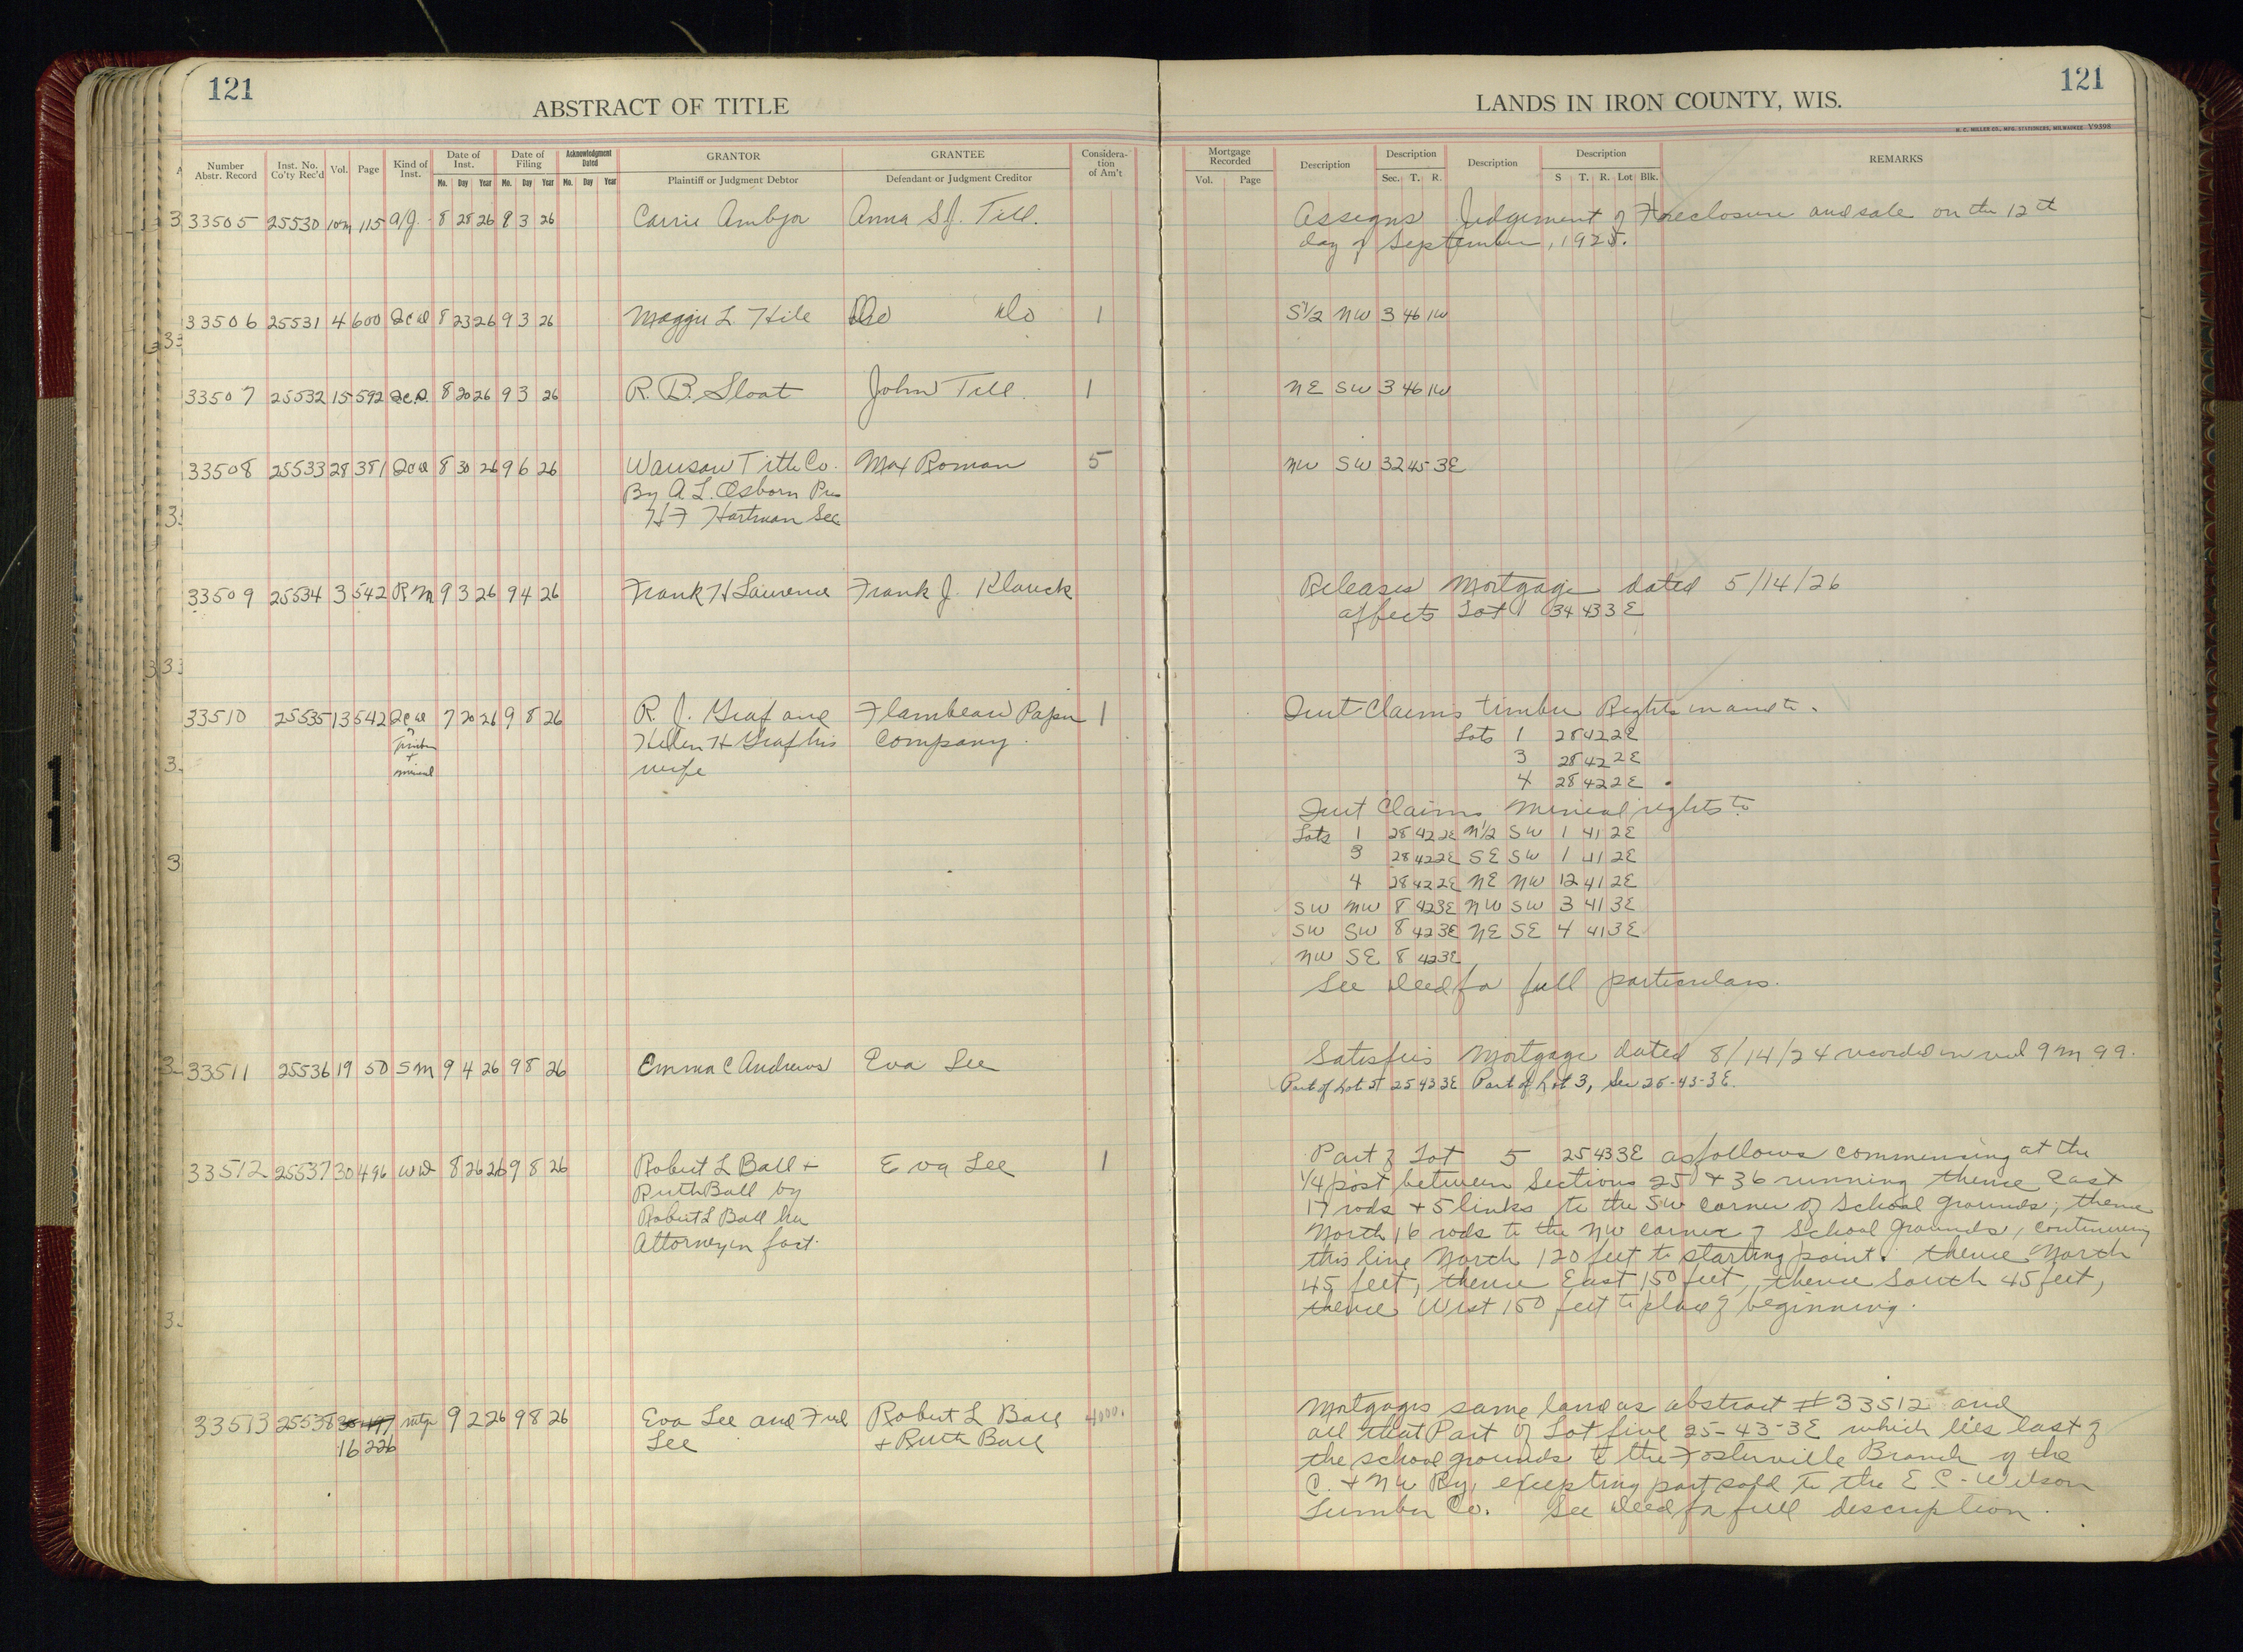 121
ABSTRACT OF TITLE
LANDS IN IRON COUNTY, WIS.
121
H. C. MILLER CO., MFG. STATIONERS, MILWAUKEE Y9398
Number Abstr. Record Inst. No. Co'ty Rec'd Vol. Page Kind of Inst. Date of Inst. Mo. Day Year Date of Filing Mo. Day Year Acknowledgment Dated Mo. Day Year GRANTOR Plaintiff or Judgment Debtor GRANTEE Defendant or Judgment Creditor Consideration of Am't
Mortgage Recorded Vol. Page Description Description Sec. T. R. Description Description S T. R. Lot Blk. REMARKS
33505 25530 10m 115 a/J. 8 28 26 9 3 26 Carrie Ambjor Anna S.J. Till. Assigns Judgement of Foreclosure and sale on the 12th
day of September, 1925.
33506 25531 4 600 Qcd 8 23 26 9 3 26 Maggie L Hile Do Do 1 S1/2 NW 3 46 1W
33507 25532 15 592 Qc.D. 8 20 26 9 3 26 R. B. Sloat John Till. 1 NE SW 3 46 1W
33508 25533 28 381 Qcd 8 30 26 9 6 26 Wausau Title Co. Max Roman 5 NW SW 32 45 3E
By A. L. Osborn Pres
H F Hartman Sec.
33509 25534 3 542 RM 9 3 26 9 4 26 Frank H Laurence Frank J. Klauck Releases Mortgage dated 5/14/26
affects Lot 1 34 43 3E
33510 25535 13 542 Qcd 7 20 26 9 8 26 R. J. Graf and Flambeau Paper 1 Quit Claims timber Rights in and to.
of Timber + mineral Helen H Graf his Company. Lots 1 28 42 2E
wife 3 28 42 2E
4 28 42 2E
Quit Claims Mineral rights to
Lots 1 28 42 2E N1/2 SW 1 41 2E
3 28 42 2E SE SW 1 41 2E
4 28 42 2E NE NW 12 41 2E
SW NW 8 42 3E NW SW 3 41 3E
SW SW 8 42 3E NE SE 4 41 3E
NW SE 8 42 3E
See deed for full particulars.
33511 25536 19 50 SM 9 4 26 9 8 26 Emma C Andrews Eva Lee Satisfies Mortgage dated 8/14/24 recorded in vol 9 M 99.
Part of Lot 5 25 43 3E Part of Lot 3, Sec 25-43-3E.
33512 25537 30 496 WD 8 26 26 9 8 26 Robert L Ball + Eva Lee 1 Part of Lot 5 25 43 3E as follows commencing at the
Ruth Ball by 1/4 post between Sections 25 + 36 running thence East
Robert L Ball her 17 rods + 5 links to the SW corner of School grounds; thence
Attorney in fact. North 16 rods to the NW corner of School grounds, continuing
this line North 120 feet to starting point. thence North
45 feet, thence East 150 feet, thence South 45 feet,
thence West 150 feet to place of beginning.
33513 25538 30 497 mtge 9 2 26 9 8 26 Eva Lee and Fred Robert L Ball 4000. Mortgages same land as abstract #33512 and
16 226 Lee + Ruth Ball all that Part of Lot five 25-43-3E which lies East of
the school grounds to the Fosterville Branch of the
C. + NW Ry, excepting part sold to the E C. Wilson
Lumber Co. See deed for full description.